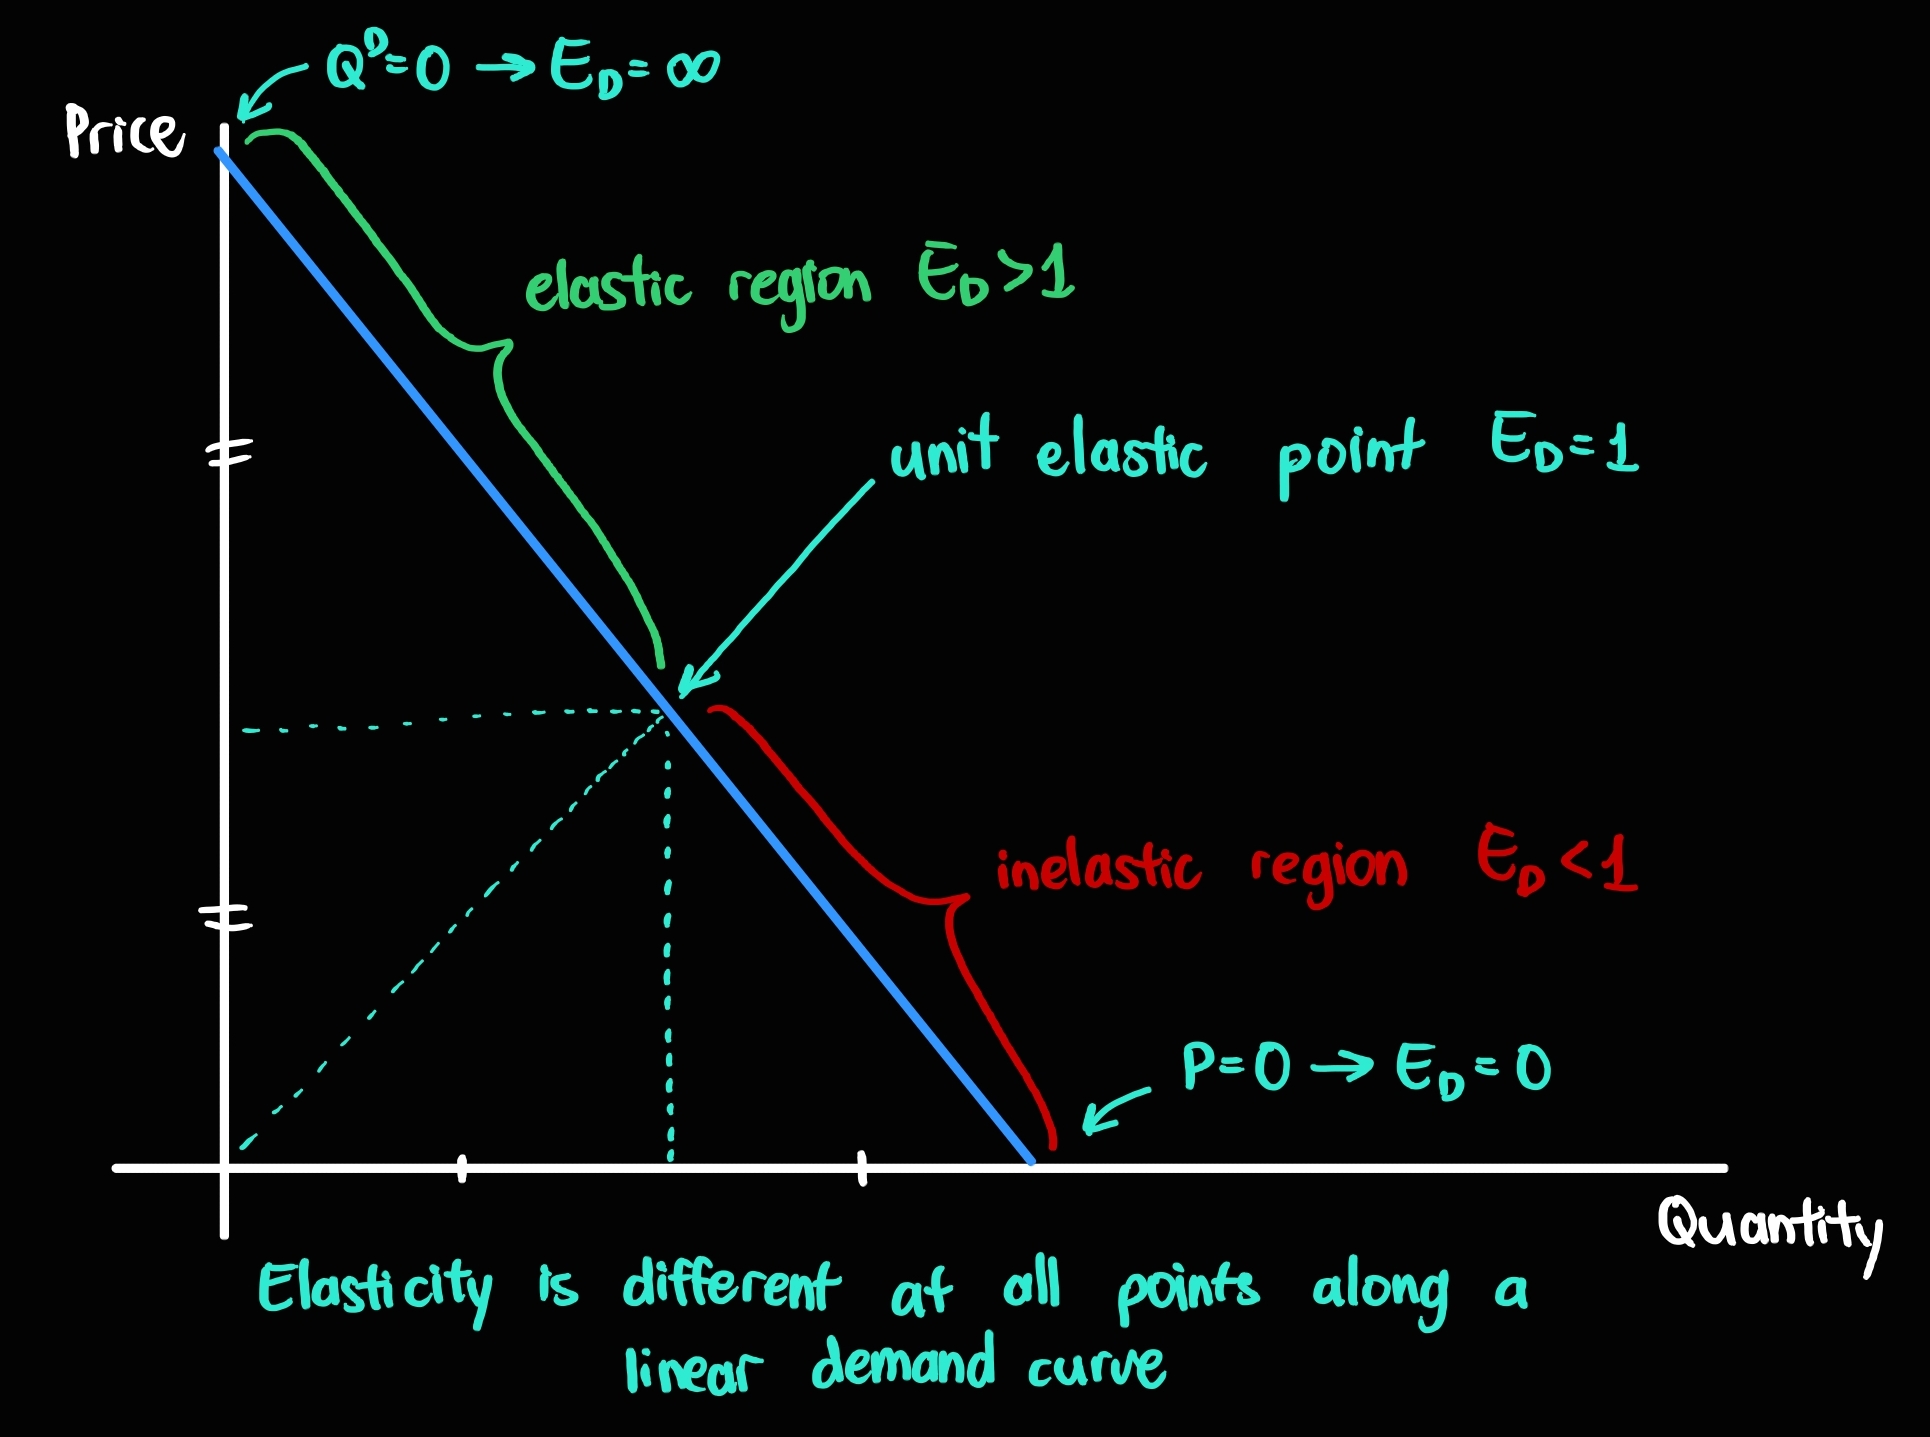 Qᴰ=0 → E_D = ∞
Price
elastic region E_D>1
unit elastic point E_D=1
inelastic region E_D<1
P=0 → E_D=0
Quantity
Elasticity is different at all points along a
linear demand curve